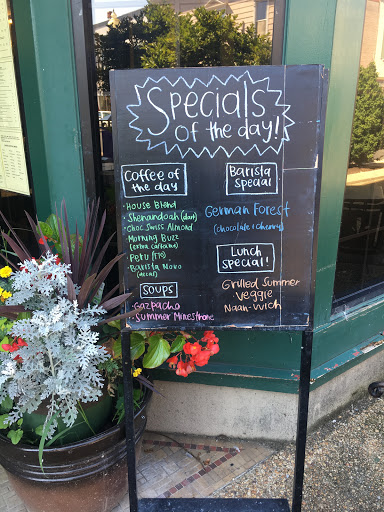 Specials
of the day!
Coffee of
the day
· House Blend
· Shenandoah (dark)
· Choc. Swiss Almond
· Morning Buzz
(extra caffeine)
· Peru (FTO)
· Barista Novo
(decaf)
Soups
· Gazpacho
· Summer Minestrone
Barista
Special
German Forest
(chocolate & cherry)
Lunch
Special!
Grilled Summer
Veggie
Naan-wich